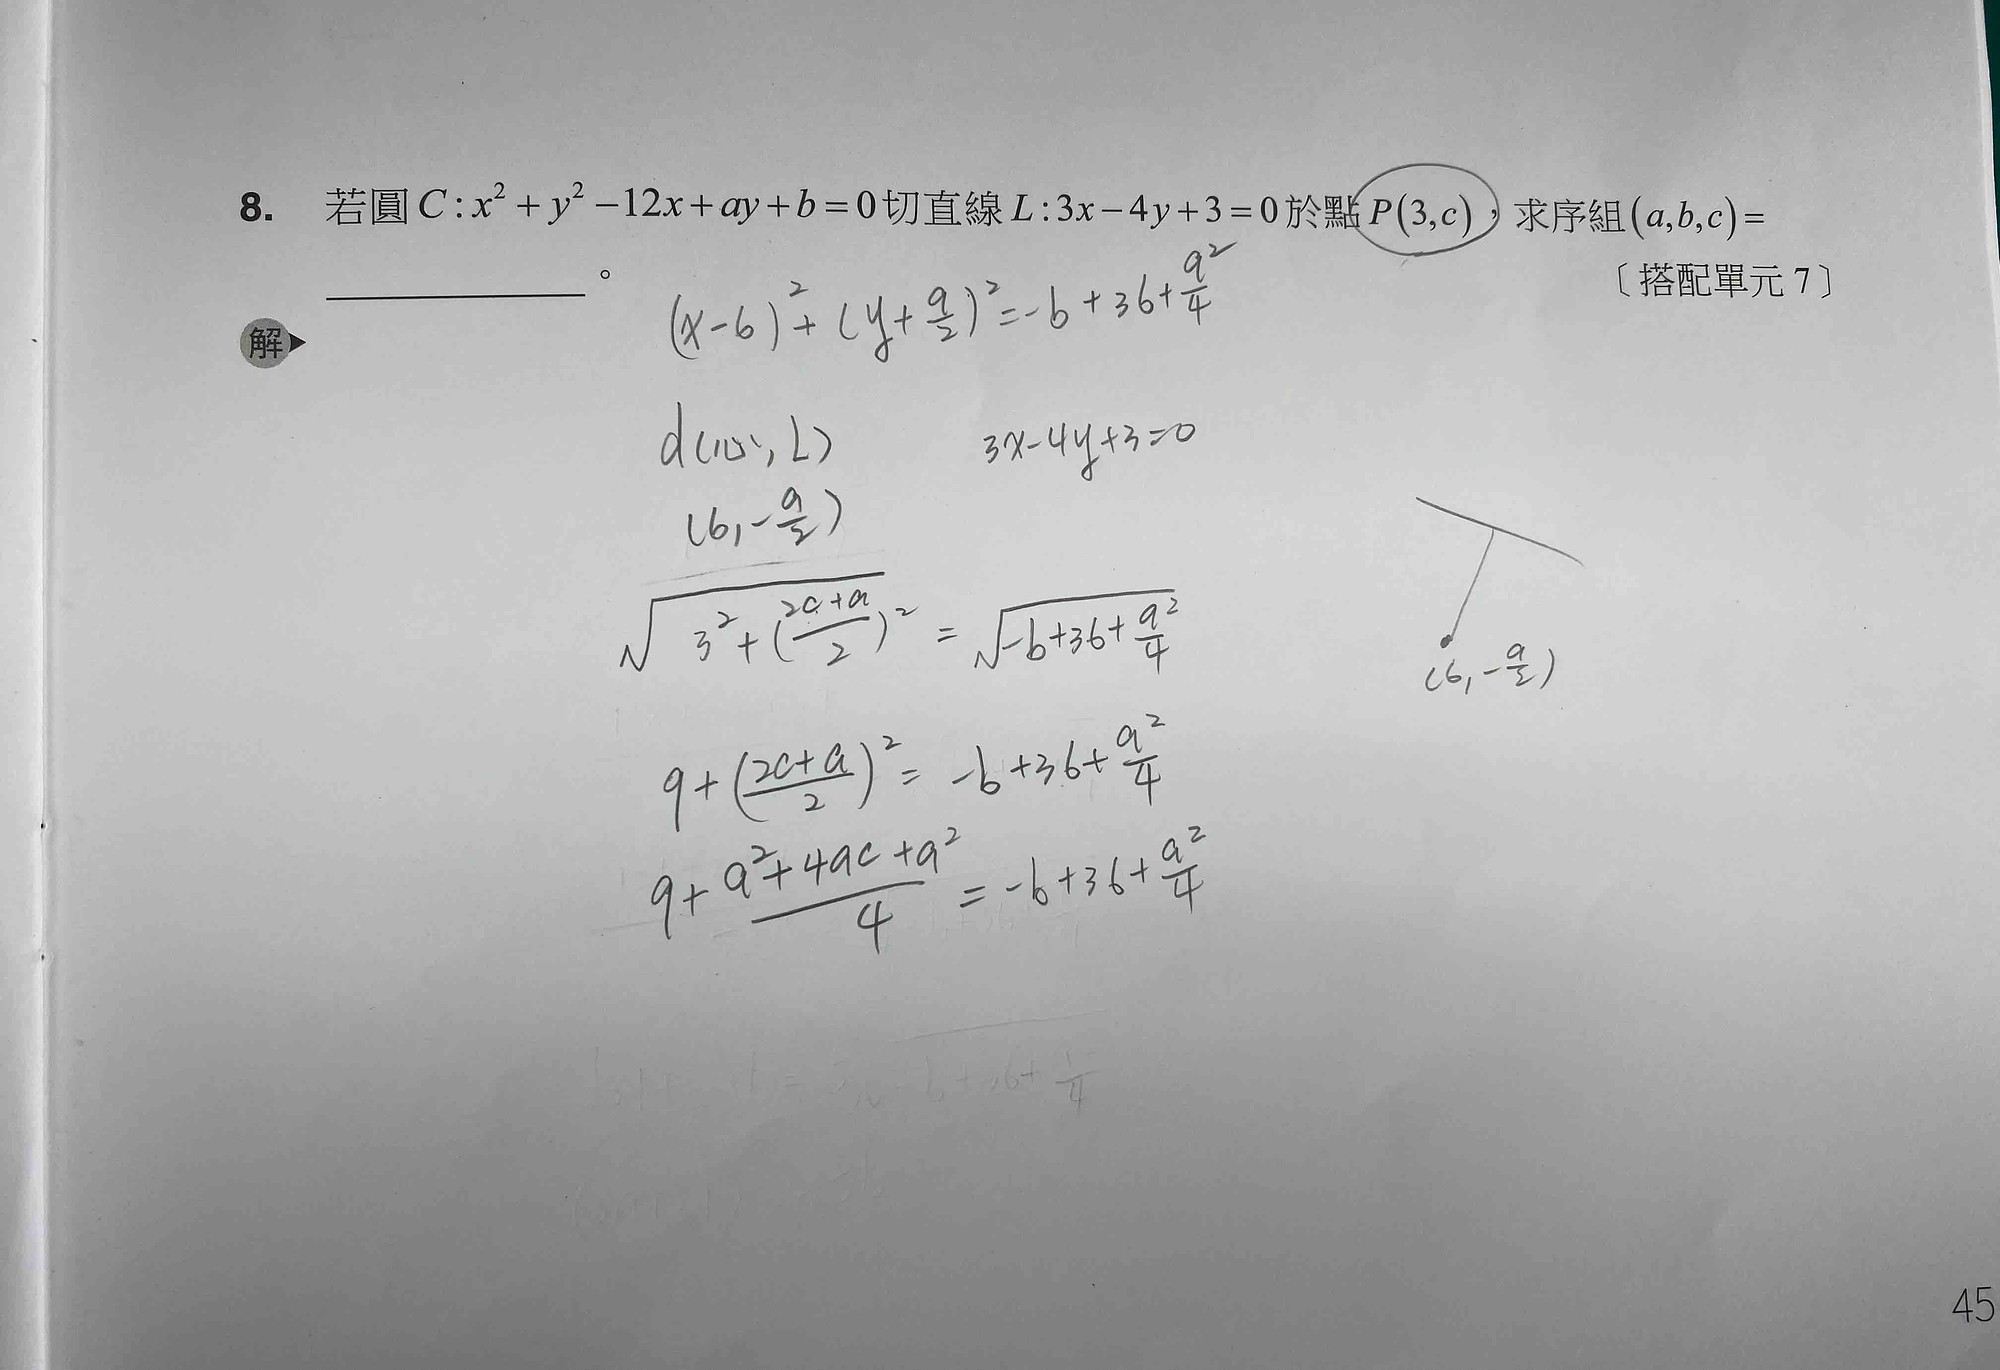 8. 若圓C:x²+y²−12x+ay+b=0切直線L:3x−4y+3=0於點P(3,c),求序組(a,b,c)=
________。
〔搭配單元7〕
解
(x-6)²+(y+a/2)²=-b+36+a²/4
d(心,L) 3x-4y+3=0
(6,-a/2)
√(3²+((2c+a)/2)²) = √(-b+36+a²/4)
(6,-a/2)
9+((2c+a)/2)²=-b+36+a²/4
9+(a²+4ac+a²)/4=-b+36+a²/4
45